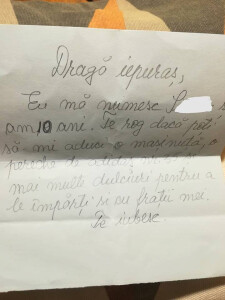 Dragă iepuraș,
Eu mă numesc
am 10 ani. Te rog dacă poți
să-mi aduci o mașinuță, o
pereche de
mai multe dulciuri pentru a
le împărți și cu frații mei.
Te iubesc.